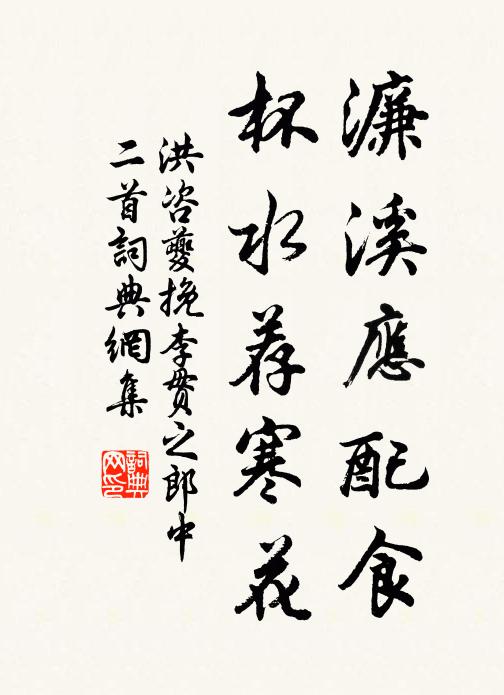 濂溪應配食
杯水荐寒花
洪咨夔挽李貫之郎中
二首詞典網集
詞典网印